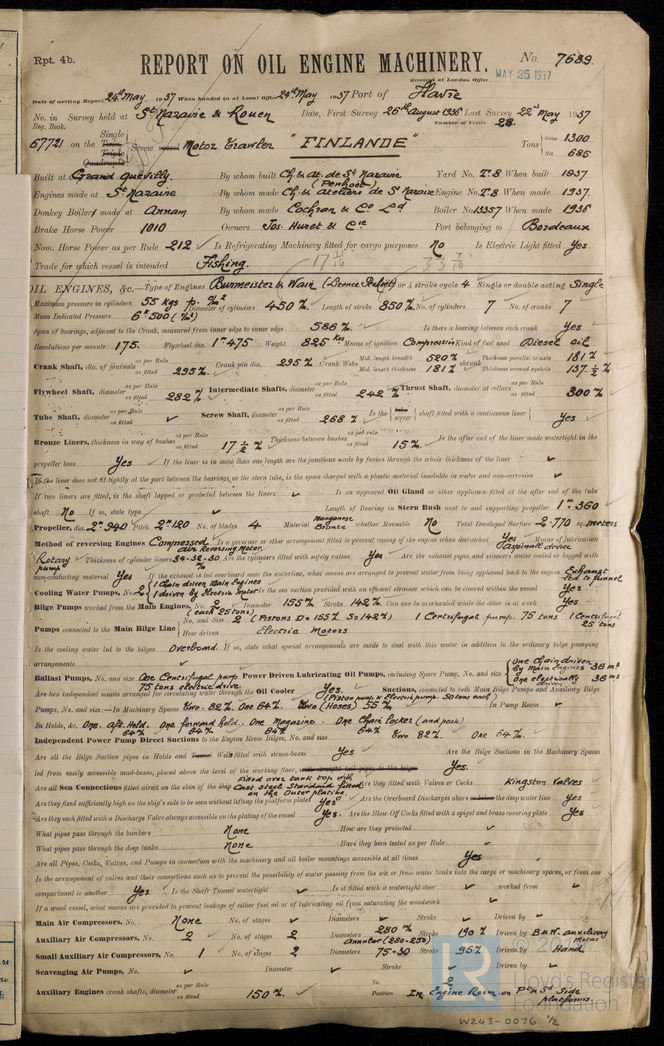 Rpt. 4b.
REPORT ON OIL ENGINE MACHINERY.
No. 7689.
Received at London Office MAY 25 1937
Date of writing Report 24th May 1937 When handed in at Local Office 24th May 1937 Port of Havre
No. in Survey held at St Nazaire & Rouen Date, First Survey 26th August 1936 Last Survey 22nd May 1937
Reg. Book. Number of Visits 28
57721 on the Single Twin Triple Quadruple Screw vessel Motor Trawler "FINLANDE" Tons Gross 1300 Net 685
Built at Grand Quevilly. By whom built Ch & At. de St Nazaire (Penhoet) Yard No. T.8 When built 1937
Engines made at St Nazaire By whom made Ch & Ateliers de St Nazaire Engine No. T.8 When made 1937.
Donkey Boilers made at Annan By whom made Cochran & Co Ld Boiler No. 13357 When made 1936
Brake Horse Power 1010 Owners Jos. Huret & Cie Port belonging to Bordeaux
Nom. Horse Power as per Rule 212 Is Refrigerating Machinery fitted for cargo purposes No Is Electric Light fitted Yes
Trade for which vessel is intended Fishing.
OIL ENGINES, &c.—Type of Engines Burmeister & Wain 2 or 4 stroke cycle 4 Single or double acting Single
Maximum pressure in cylinders 55 Kgs p. Diameter of cylinders 450 Length of stroke 850 No. of cylinders 7 No. of cranks 7
Mean Indicated Pressure 6k 500
Span of bearings, adjacent to the Crank, measured from inner edge to inner edge 586 Is there a bearing between each crank Yes
Revolutions per minute 175. Flywheel dia. 1m 475 Weight 825 Kgs Means of ignition Compression Kind of fuel used Diesel oil
Crank Shaft, dia. of journals as per Rule as fitted 295 Crank pin dia. 295 Crank Webs Mid. length breadth 520 Mid. length thickness 181 shrunk Thickness parallel to axis 181 Thickness around eyehole 137.½
Flywheel Shaft, diameter as per Rule as fitted 282 Intermediate Shafts, diameter as per Rule as fitted 242 Thrust Shaft, diameter at collars as per Rule as fitted 300
Tube Shaft, diameter as per Rule as fitted Screw Shaft, diameter as per Rule as fitted 268 Is the tube screw shaft fitted with a continuous liner Yes
Bronze Liners, thickness in way of bushes as per Rule as fitted 17 ½ Thickness between bushes as per rule as fitted 15 Is the after end of the liner made watertight in the
propeller boss Yes If the liner is in more than one length are the junctions made by fusion through the whole thickness of the liner
If the liner does not fit tightly at the part between the bearings in the stern tube, is the space charged with a plastic material insoluble in water and non-corrosive
If two liners are fitted, is the shaft lapped or protected between the liners Is an approved Oil Gland or other appliance fitted at the after end of the tube
shaft No If so, state type Length of Bearing in Stern Bush next to and supporting propeller 1m 360
Propeller, dia. 2m 940 Pitch 2m 120 No. of blades 4 Material Manganese Bronze whether Moveable No Total Developed Surface 2.770 sq. meters
Method of reversing Engines Compressed air Reversing Motor Is a governor or other arrangement fitted to prevent racing of the engine when declutched Yes Aspinall device Means of lubrication
Rotary pump Thickness of cylinder liners 34-32-30 Are the cylinders fitted with safety valves Yes Are the exhaust pipes and silencers water cooled or lagged with
non-conducting material Yes If the exhaust is led overboard near the waterline, what means are arranged to prevent water being syphoned back to the engine Exhaust led to funnel
Cooling Water Pumps, No. 2 (1 Chain driven Main Engines 1 driven by Electric Motor) Is the sea suction provided with an efficient strainer which can be cleared within the vessel Yes
Bilge Pumps worked from the Main Engines, No. 2 (each 25 tons) Diameter 155 Stroke 142 Can one be overhauled while the other is at work Yes
Pumps connected to the Main Bilge Line No. and Size 2 (Pistons D=155 S=142) 1 Centrifugal pump. 75 tons 1 Centrifugal 25 tons
How driven Electric Motors
Is the cooling water led to the bilges Overboard If so, state what special arrangements are made to deal with this water in addition to the ordinary bilge pumping
arrangements
Ballast Pumps, No. and size One Centrifugal pump 75 tons electric drive Power Driven Lubricating Oil Pumps, including Spare Pump, No. and size One Chain driven by Main Engines 36 m3 One electrically driven 36 m3
Are two independent means arranged for circulating water through the Oil Cooler Yes. Suctions, connected to both Main Bilge Pumps and Auxiliary Bilge
(Piston pump & Electric pump. 50 tons each)
Pumps, No. and size:—In Machinery Spaces Two. 82 One 64 Two (Hoses) 55 In Pump Room
In Holds, &c. One. Aft. Hold. 64 One forward hold. 64 One Magazine. 64 One Chain locker (and peak) 64
Independent Power Pump Direct Suctions to the Engine Room Bilges, No. and size Two 82 One 64
Are all the Bilge Suction pipes in Holds and Tunnel Well fitted with strum-boxes Yes Are the Bilge Suctions in the Machinery Spaces
led from easily accessible mud-boxes, placed above the level of the working floor, with straight tail pipes to the bilges Yes.
Are all Sea Connections fitted direct on the skin of the ship Fitted over tank top with Cast steel Standard fitted on the Outer plating Are they fitted with Valves or Cocks Kingston Valves
Are they fixed sufficiently high on the ship's side to be seen without lifting the platform plates Yes Are the Overboard Discharges above or below the deep water line Yes
Are they each fitted with a Discharge Valve always accessible on the plating of the vessel Yes Are the Blow Off Cocks fitted with a spigot and brass covering plate Yes
What pipes pass through the bunkers None How are they protected
What pipes pass through the deep tanks None Have they been tested as per Rule
Are all Pipes, Cocks, Valves, and Pumps in connection with the machinery and all boiler mountings accessible at all times Yes
Is the arrangement of valves and their connections such as to prevent the possibility of water passing from the sea or from water tanks into the cargo or machinery spaces, or from one
compartment to another Yes Is the Shaft Tunnel watertight Is it fitted with a watertight door worked from
If a wood vessel, what means are provided to prevent leakage of either fuel oil or of lubricating oil from saturating the woodwork
Main Air Compressors, No. None No. of stages Diameters Stroke Driven by
Auxiliary Air Compressors, No. 2 No. of stages 2 Diameters 280 annular (280-250) Stroke 190 Driven by B & W. auxiliary motors
Small Auxiliary Air Compressors, No. 1 No. of stages 2 Diameters 75-30 Stroke 95 Driven by Hand
Scavenging Air Pumps, No. Diameter Stroke Driven by
Auxiliary Engines crank shafts, diameter as per Rule as fitted 150 No. 2 Position In Engine Room on P & Sd Side platforms.
Lloyd's Register Foundation
W243-0076 ½